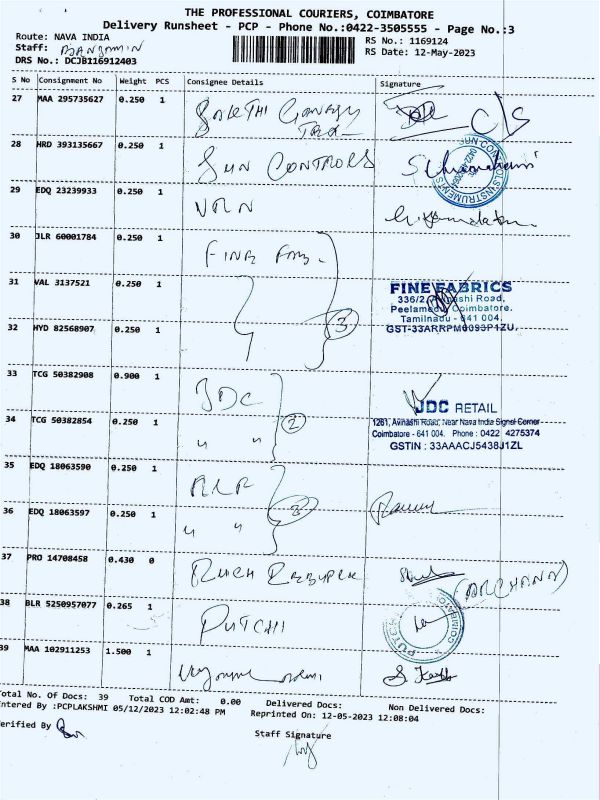 THE PROFESSIONAL COURIERS, COIMBATORE
Delivery Runsheet - PCP - Phone No.:0422-3505555 - Page No.:3
Route: NAVA INDIA RS No.: 1169124
Staff: BANJAMIN RS Date: 12-May-2023
DRS No.: DCJB116912403
S No Consignment No Weight PCS Consignee Details Signature
27 MAA 295735627 0.250 1 C/S
28 HRD 393135667 0.250 1 SUN CONTROLS
29 EDQ 23239933 0.250 1 VRN
30 JLR 60001784 0.250 1 FINE FAB.
31 VAL 3137521 0.250 1
FINE FABRICS
336/2, Avinashi Road,
Peelamedu, Coimbatore.
Tamilnadu - 641 004.
32 HYD 82568907 0.250 1 3
GST-33ARRPM0093P1ZU,
33 TCG 50382908 0.900 1 JDC
JDC RETAIL
34 TCG 50382854 0.250 1 " " 2
1261, Avinashi Road, Near Nava India Signal Corner
Coimbatore - 641 004. Phone : 0422 4275374
GSTIN : 33AAACJ5438J1ZL
35 EDQ 18063590 0.250 1
36 EDQ 18063597 0.250 1 " "
37 PRO 14708458 0.430 0 (ARCHANA)
38 BLR 5250957077 0.265 1
39 MAA 102911253 1.500 1
Total No. Of Docs: 39 Total COD Amt: 0.00 Delivered Docs: Non Delivered Docs:
Entered By :PCPLAKSHMI 05/12/2023 12:02:48 PM Reprinted On: 12-05-2023 12:08:04
Verified By
Staff Signature